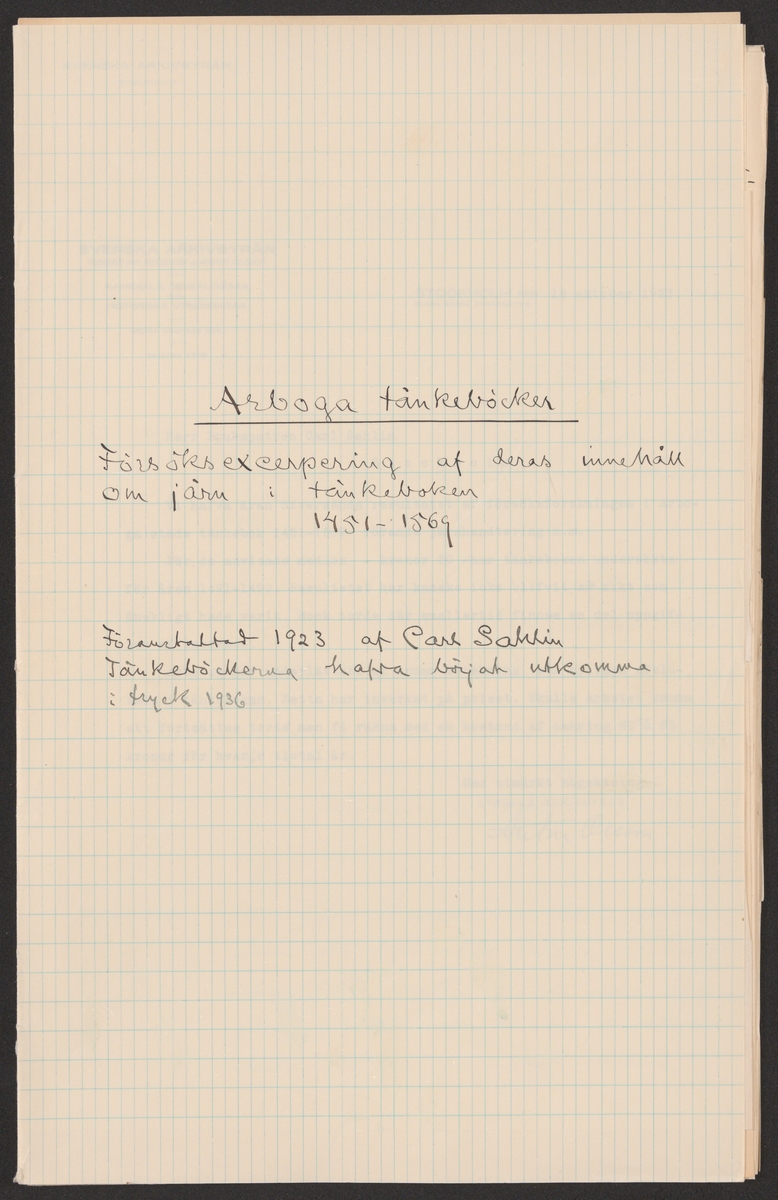 Arboga tänkeböcker
Försöksexcerpering af deras innehåll
om järn i tänkeboken
1451-1569
Föranstaltad 1923 af Carl Sahlin
Tänkeböckerna hafva börjat utkomma
i tryck 1936